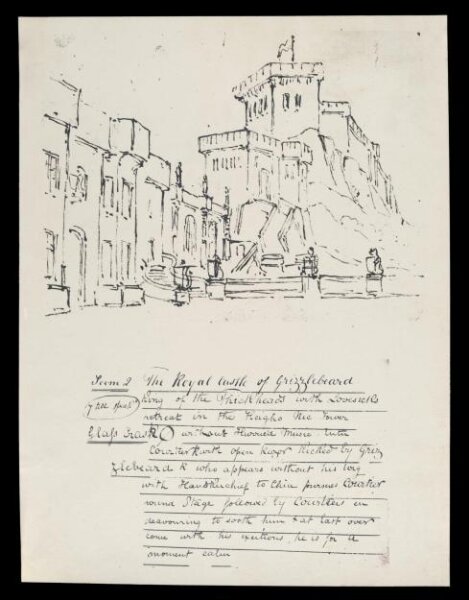 Scene 2 The Royal Castle of Grizzlebeard
King of the Thickheads with Lovesick's
retreat in the Heigho Tower
Glass Crash without Hurried Music. Enter
Courtier R with open Razor Kicked by Griz
zlebeard R who appears without his wig
with Handkerchief to Chin pursues Courtier
round Stage followed by Courtiers en
deavouring to sooth him & at last over
come with his exertions, he is for a
moment calm